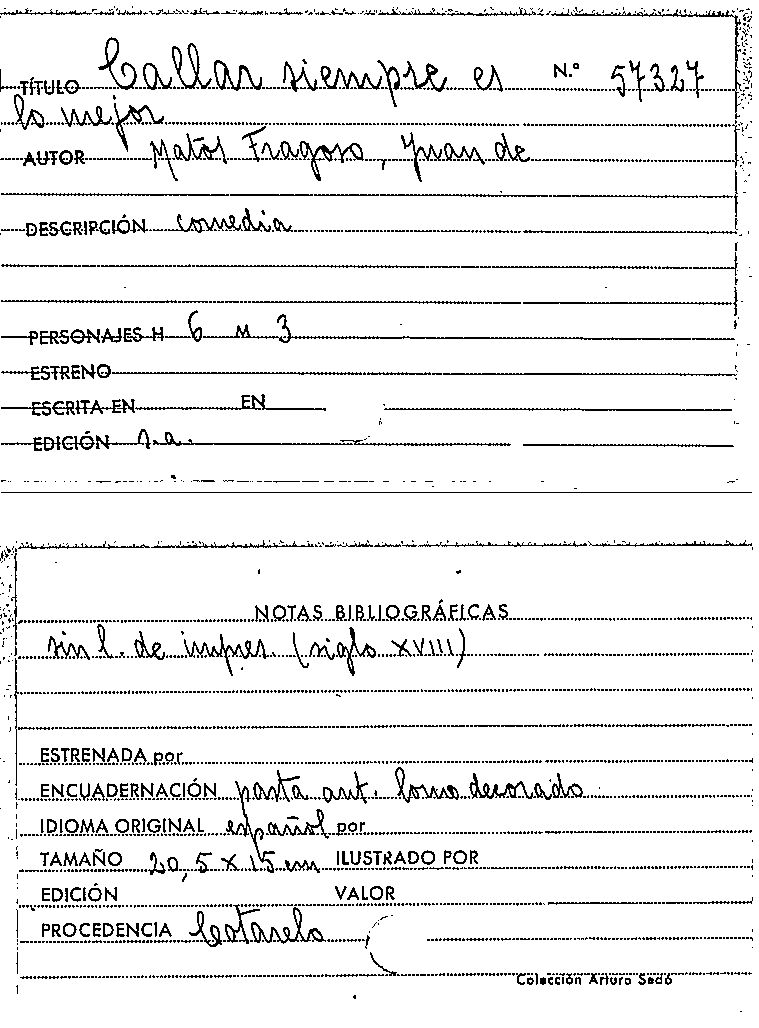 TÍTULO Callar siempre es N.º 57327
lo mejor
AUTOR Matos Fragoso, Juan de
DESCRIPCIÓN comedia
PERSONAJES H 6 M 3
ESTRENO
ESCRITA EN EN
EDICIÓN s.a.
NOTAS BIBLIOGRÁFICAS
sin l. de impres. (siglo XVIII)
ESTRENADA por
ENCUADERNACIÓN pasta ant. lomo decorado
IDIOMA ORIGINAL español por
TAMAÑO 20,5 x 15 cm ILUSTRADO POR
EDICIÓN VALOR
PROCEDENCIA Cotarelo
Colección Arturo Sedó